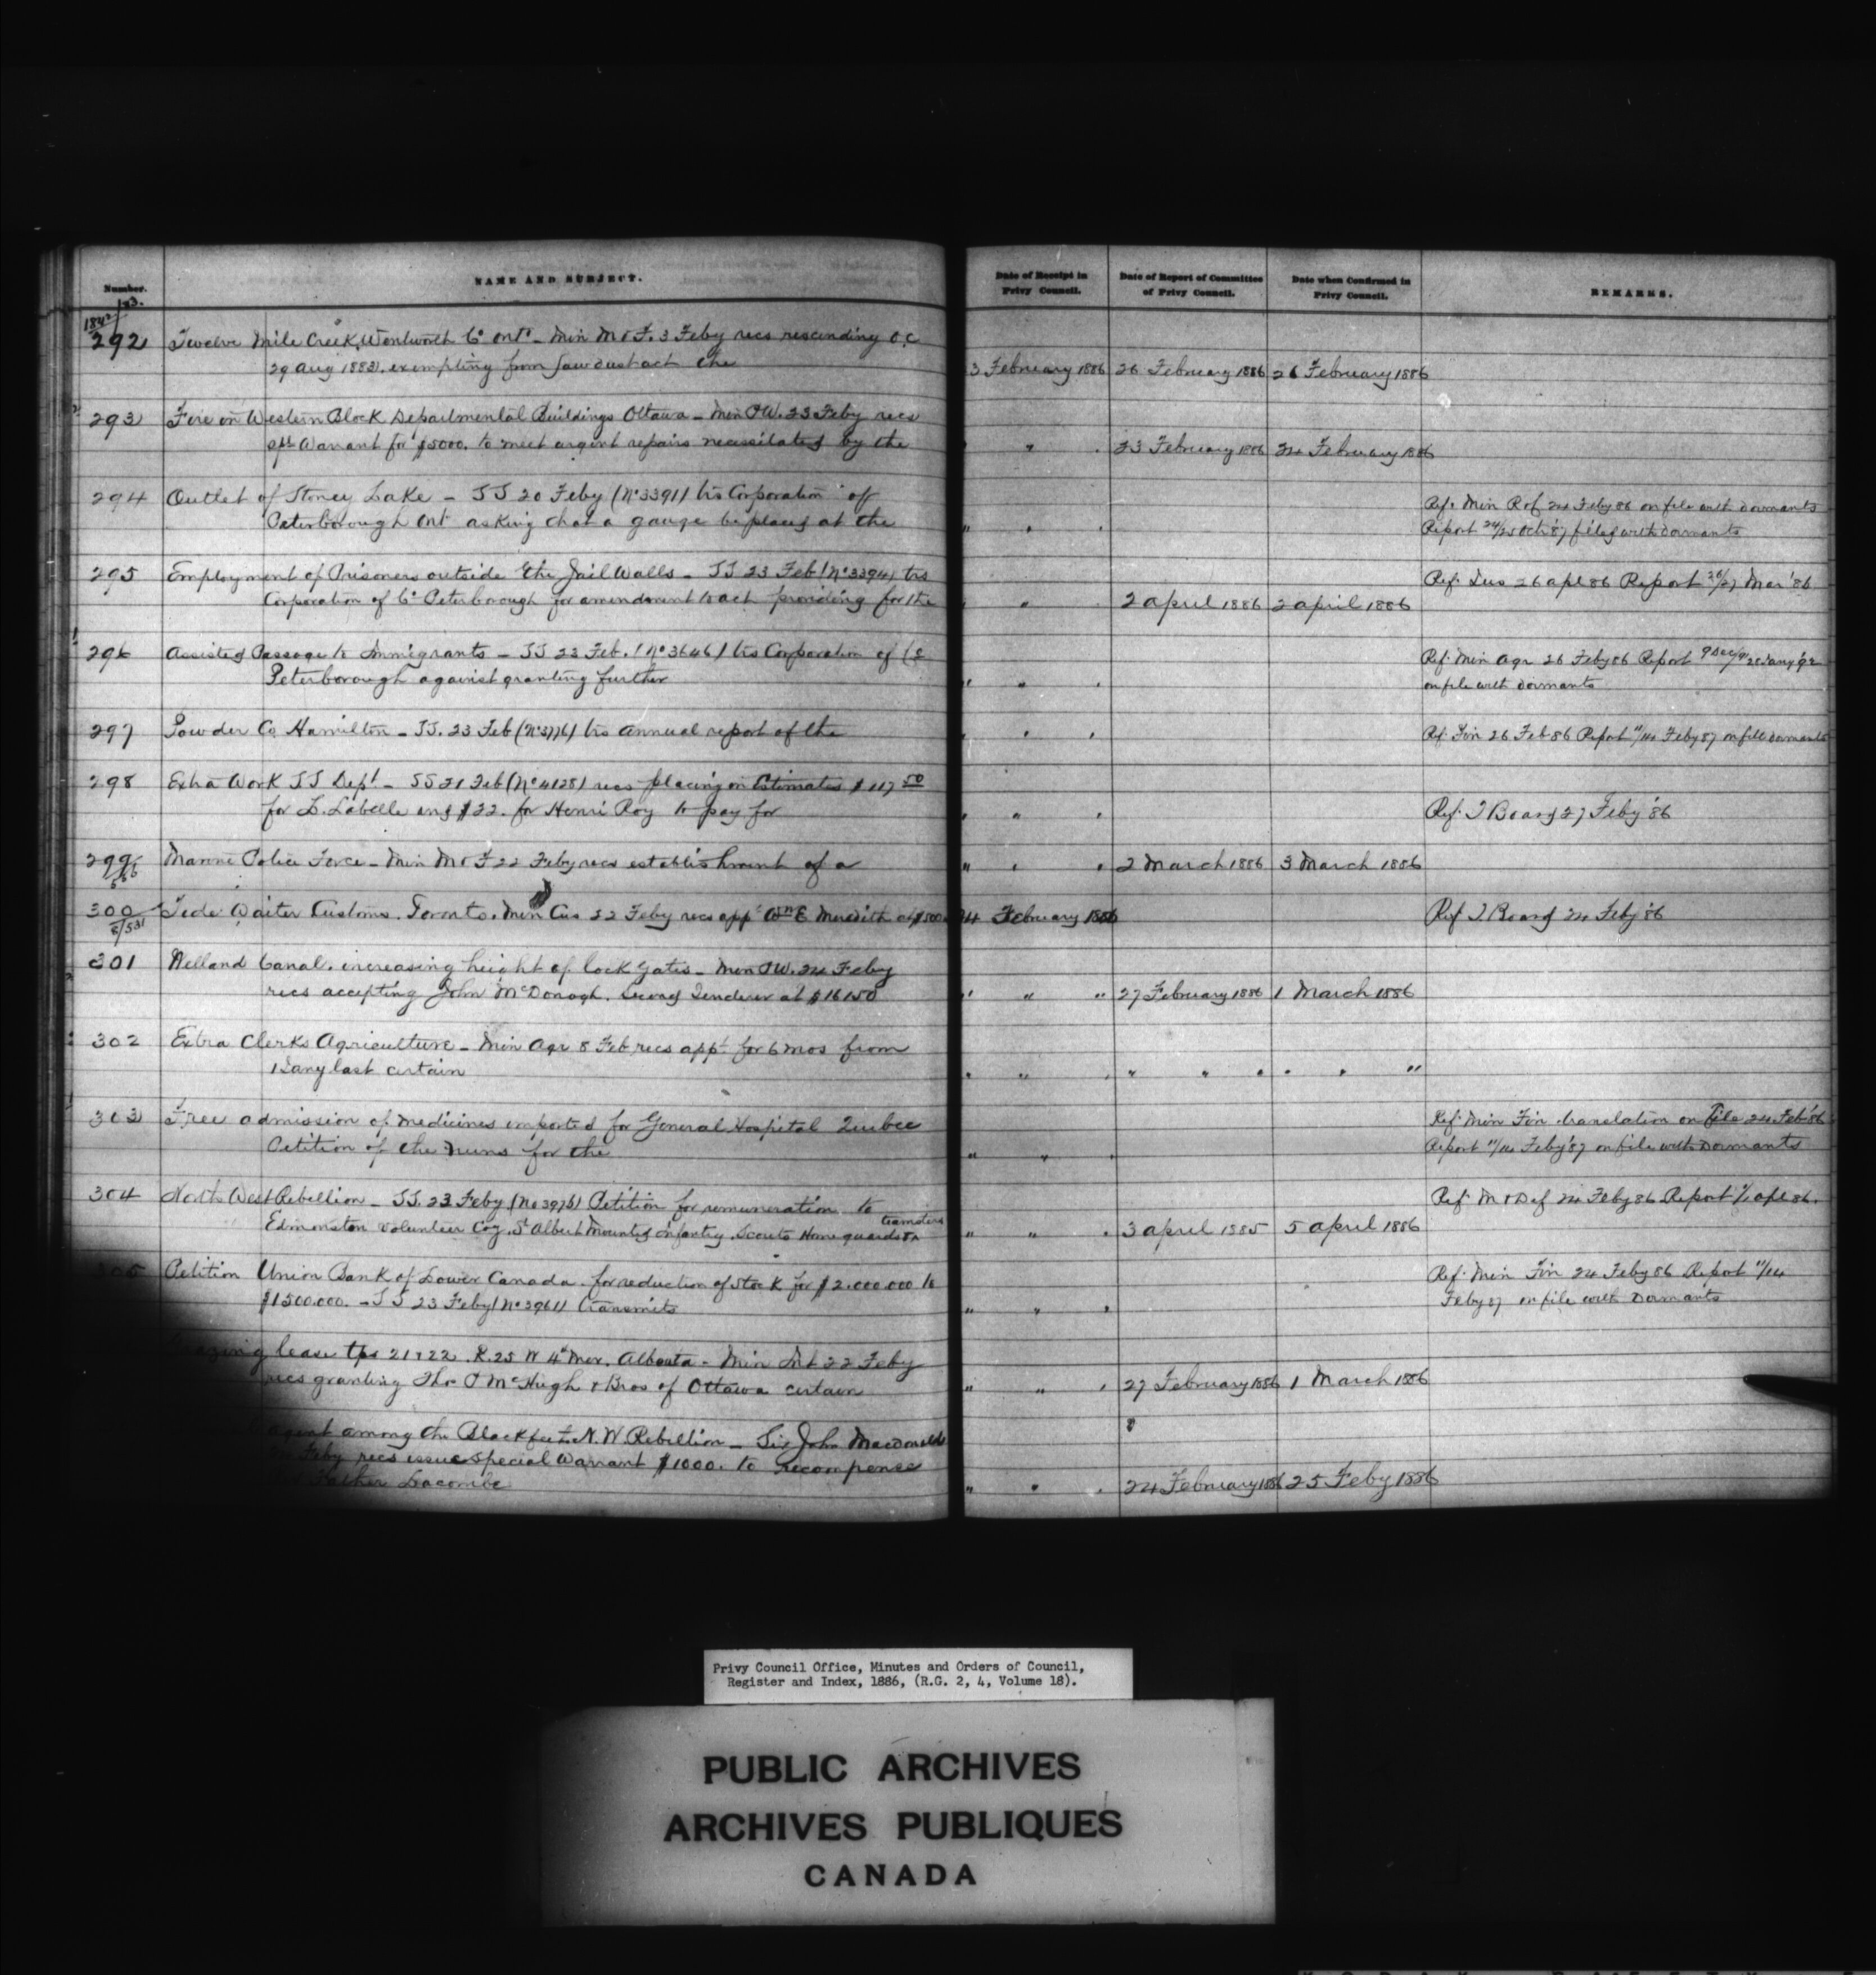 Number. NAME AND SUBJECT. Date of Receipt in Privy Council. Date of Report of Committee of Privy Council. Date when Confirmed in Privy Council. REMARKS.
292 Twelve Mile Creek, Wentworth Co Onto - Min M & F. 3 Feby recs rescinding O.C
29 Aug 1883, exempting from Sawdust act the 3 February 1886 26 February 1886 26 February 1886
293 Fire in Western Block Departmental Buildings Ottawa - Min P W. 23 Feby recs
spl Warrant for $5000. to meet urgent repairs necessitated by the " " " 23 February 1886 24 February 1886
294 Outlet of Stoney Lake - SS 20 Feby (No 3391) trs Corporation of Ref. Min 24 Feby 86 on file with dormants
Peterborough Ont asking that a gauge be placed at the " " " Report 24/25 Oct '87 filed with dormants
295 Employment of Prisoners outside the Jail Walls - SS 23 Feb (No 3394) trs
Corporation of Co Peterborough for amendment to act providing for the " " 2 April 1886 2 April 1886 Ref. Jus 26 Apl 86 Report 26/27 Mar '86
296 Assisted Passage to Immigrants - SS 23 Feb. (No 3646) trs Corporation of Co Ref. Min Agr 26 Feby 86 Report 9 Dec/91 20 Jany '92
Peterborough against granting further " " " on file with dormants
297 Powder Co Hamilton - SS. 23 Feb (No 3776) trs Annual report of the " " " Ref. Fin 26 Feb 86 Report 11/14 Feby 87 on file dormants
298 Extra Work SS Dept - SS 21 Feb (No 4128) recs placing on Estimates $117 50
for L. Labelle and $22. for Henri Roy to pay for " " " Ref. T Board 27 Feby '86
299 Marine Police Force - Min M & F 22 Feby recs establishment of a " " " 2 March 1886 3 March 1886
300 Tide Waiter Customs. Toronto. Min Cus 22 Feby recs appt Wm E Meredith at $500 24 February 1886 Ref T Board 24 Feby '86
301 Welland Canal. increasing height of lock gates - Min P W. 24 Feby
recs accepting John McDonogh. Second Tenderer at $16150 " " " 27 February 1886 1 March 1886
302 Extra Clerks Agriculture - Min Agr 8 Feb recs appt for 6 mos from
1 Jany last certain " " " " " " " " "
303 Free admission of medicines imported for General Hospital Quebec Ref. Min Fin. translation on file 24 Feb '86
Petition of the Nuns for the " " " Report 11/14 Feby '87 on file with Dormants
304 North West Rebellion - SS. 23 Feby (No 3976) Petition for remuneration to Ref. M & Def 24 Feby 86 Report Apl 86.
Edmonton Volunteer Coy. St Albert Mounted Infantry. Scouts Home guards teamsters &c " " " 3 April 1885 5 April 1886
305 Petition Union Bank of Lower Canada. for reduction of Stock for $2.000.000 to Ref. Min Fin 24 Feby 86 Report 11/14
$1500.000. - SS 23 Feby (No 3961) transmits " " " Feby 87 on file with Dormants
Grazing lease tps 21 & 22. R. 25 W 4th Mer. Alberta - Min Int 22 Feby
recs granting Thos P McHugh & Bros of Ottawa certain " " " 27 February 1886 1 March 1886
agent among the Blackfeet N.W. Rebellion - Sir John Macdonald
Feby recs issue special Warrant $1000. to recompense
Father Lacombe " " " 24 February 1886 25 Feby 1886
Privy Council Office, Minutes and Orders of Council,
Register and Index, 1886, (R.G. 2, 4, Volume 18).
PUBLIC ARCHIVES
ARCHIVES PUBLIQUES
CANADA